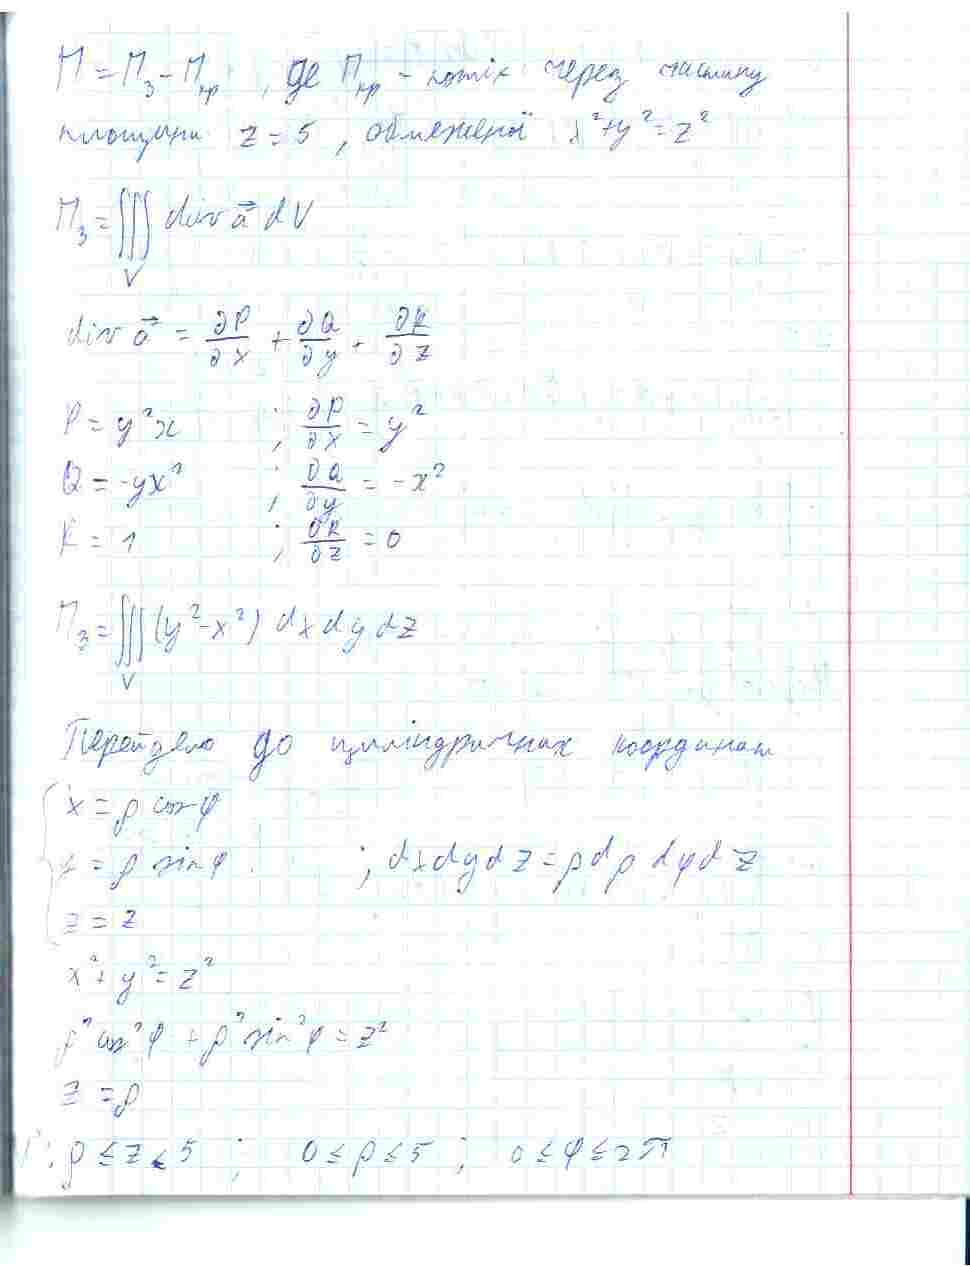 П = П_з - П_пр , де П_пр - потік через частину
площини z = 5 , обмеженої x² + y² = z²
П_з = ∭_V div a⃗ dV
div a⃗ = ∂P/∂x + ∂Q/∂y + ∂R/∂z
P = y²x ; ∂P/∂x = y²
Q = -yx² ; ∂Q/∂y = -x²
R = 1 ; ∂R/∂z = 0
П_з = ∭_V (y² - x²) dx dy dz
Перейдемо до циліндричних координат
{ x = ρ cos φ
y = ρ sin φ ; dx dy dz = ρ dρ dφ dz
z = z
x² + y² = z²
ρ² cos² φ + ρ² sin² φ = z²
z = ρ
: ρ ≤ z ≤ 5 ; 0 ≤ ρ ≤ 5 ; 0 ≤ φ ≤ 2π